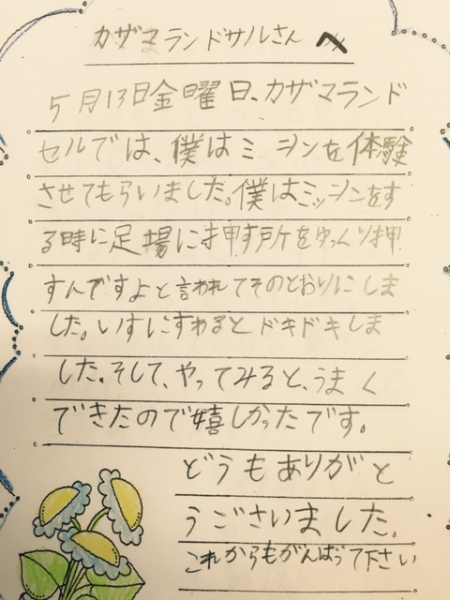 カザマランドサルさん へ
5月13日金曜日、カザマランド
セルでは、僕はミシンを体験
させてもらいました。僕はミッシンをす
る時に足場に押す所をゆっくり押
すんですよと言われてそのとおりにしま
した。いすにすわるとドキドキしま
した。そして、やってみると、うまく
できたので嬉しかったです。
どうもありがと
うございました。
これからもがんばって下さい